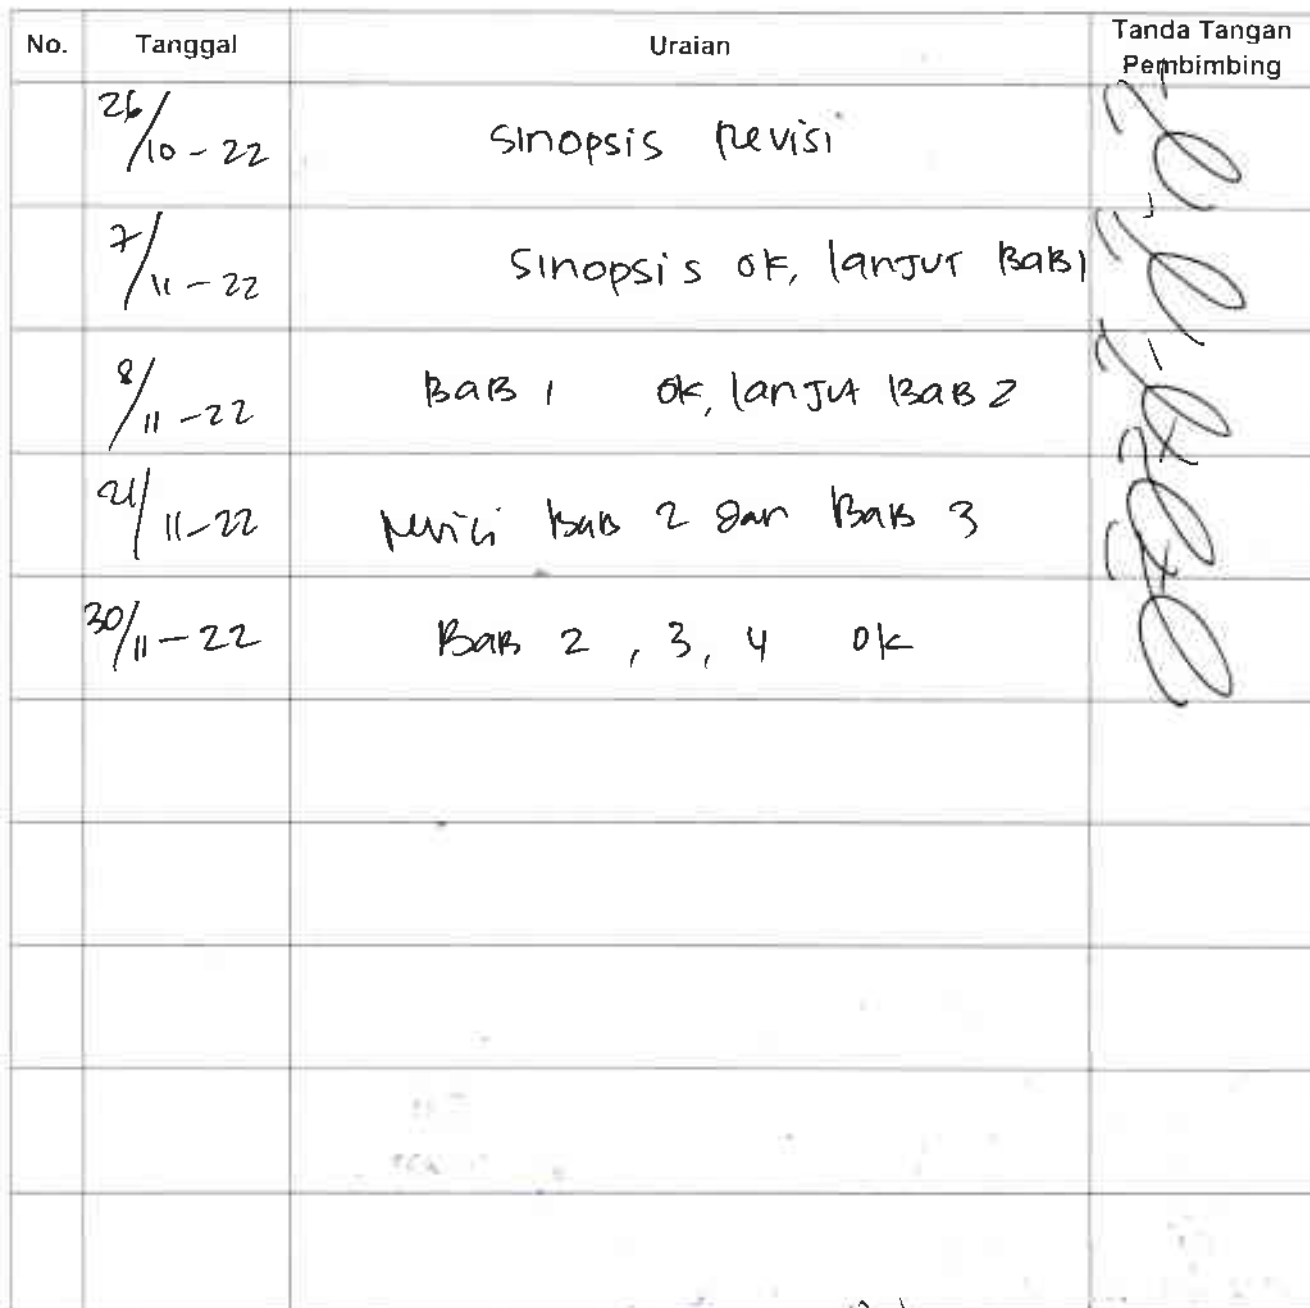 No. Tanggal Uraian Tanda Tangan
Pembimbing
26/10 - 22 Sinopsis Revisi
7/11 - 22 Sinopsis OK, lanjut BAB 1
8/11 - 22 BAB 1 ok, lanjut BAB 2
21/11 - 22 revisi Bab 2 dan Bab 3
30/11 - 22 BAB 2, 3, 4 ok